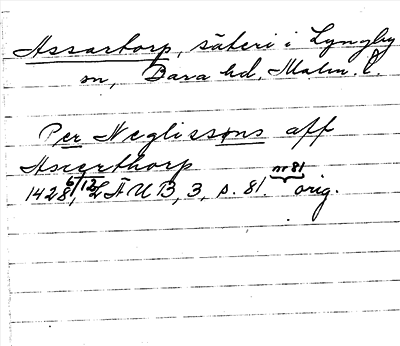 Assartorp, säteri i Lyngby
sn, Bara hd, Malm. l.
Per Neglissøns aff
Asserthorp
1428 6/12, LÄUB, 3, s. 81. nr 81 orig.